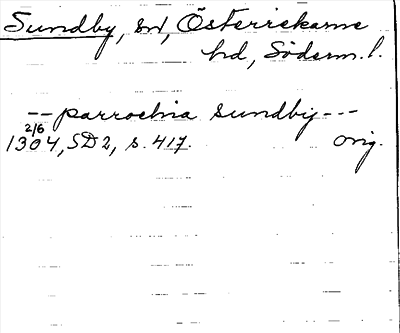 Sundby, sn, Österrekarne
hd, Söderm. l.
-- parrochia sundby ---
2/6
1304, SD2, s. 417. orig.